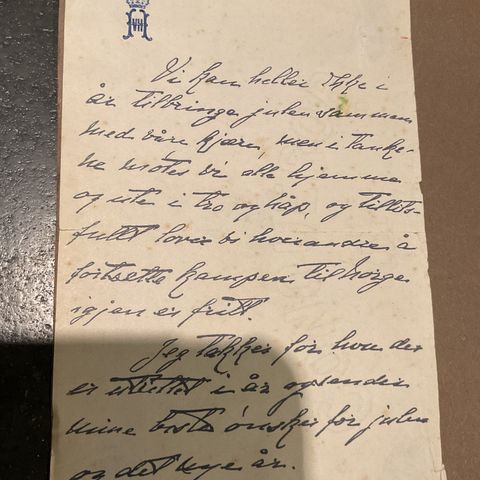 H VII
Vi kan heller ikke i
år tilbringe julen sammen
med våre kjære, men i tanke-
ne møtes vi alle hjemme
og ute i tro og håp, og tillits-
fullt lover vi hverandre å
fortsette kampen til Norge
igjen er fritt.
Jeg takker for hva der
er utrettet i år og sender
mine beste ønsker for julen
og det nye år.